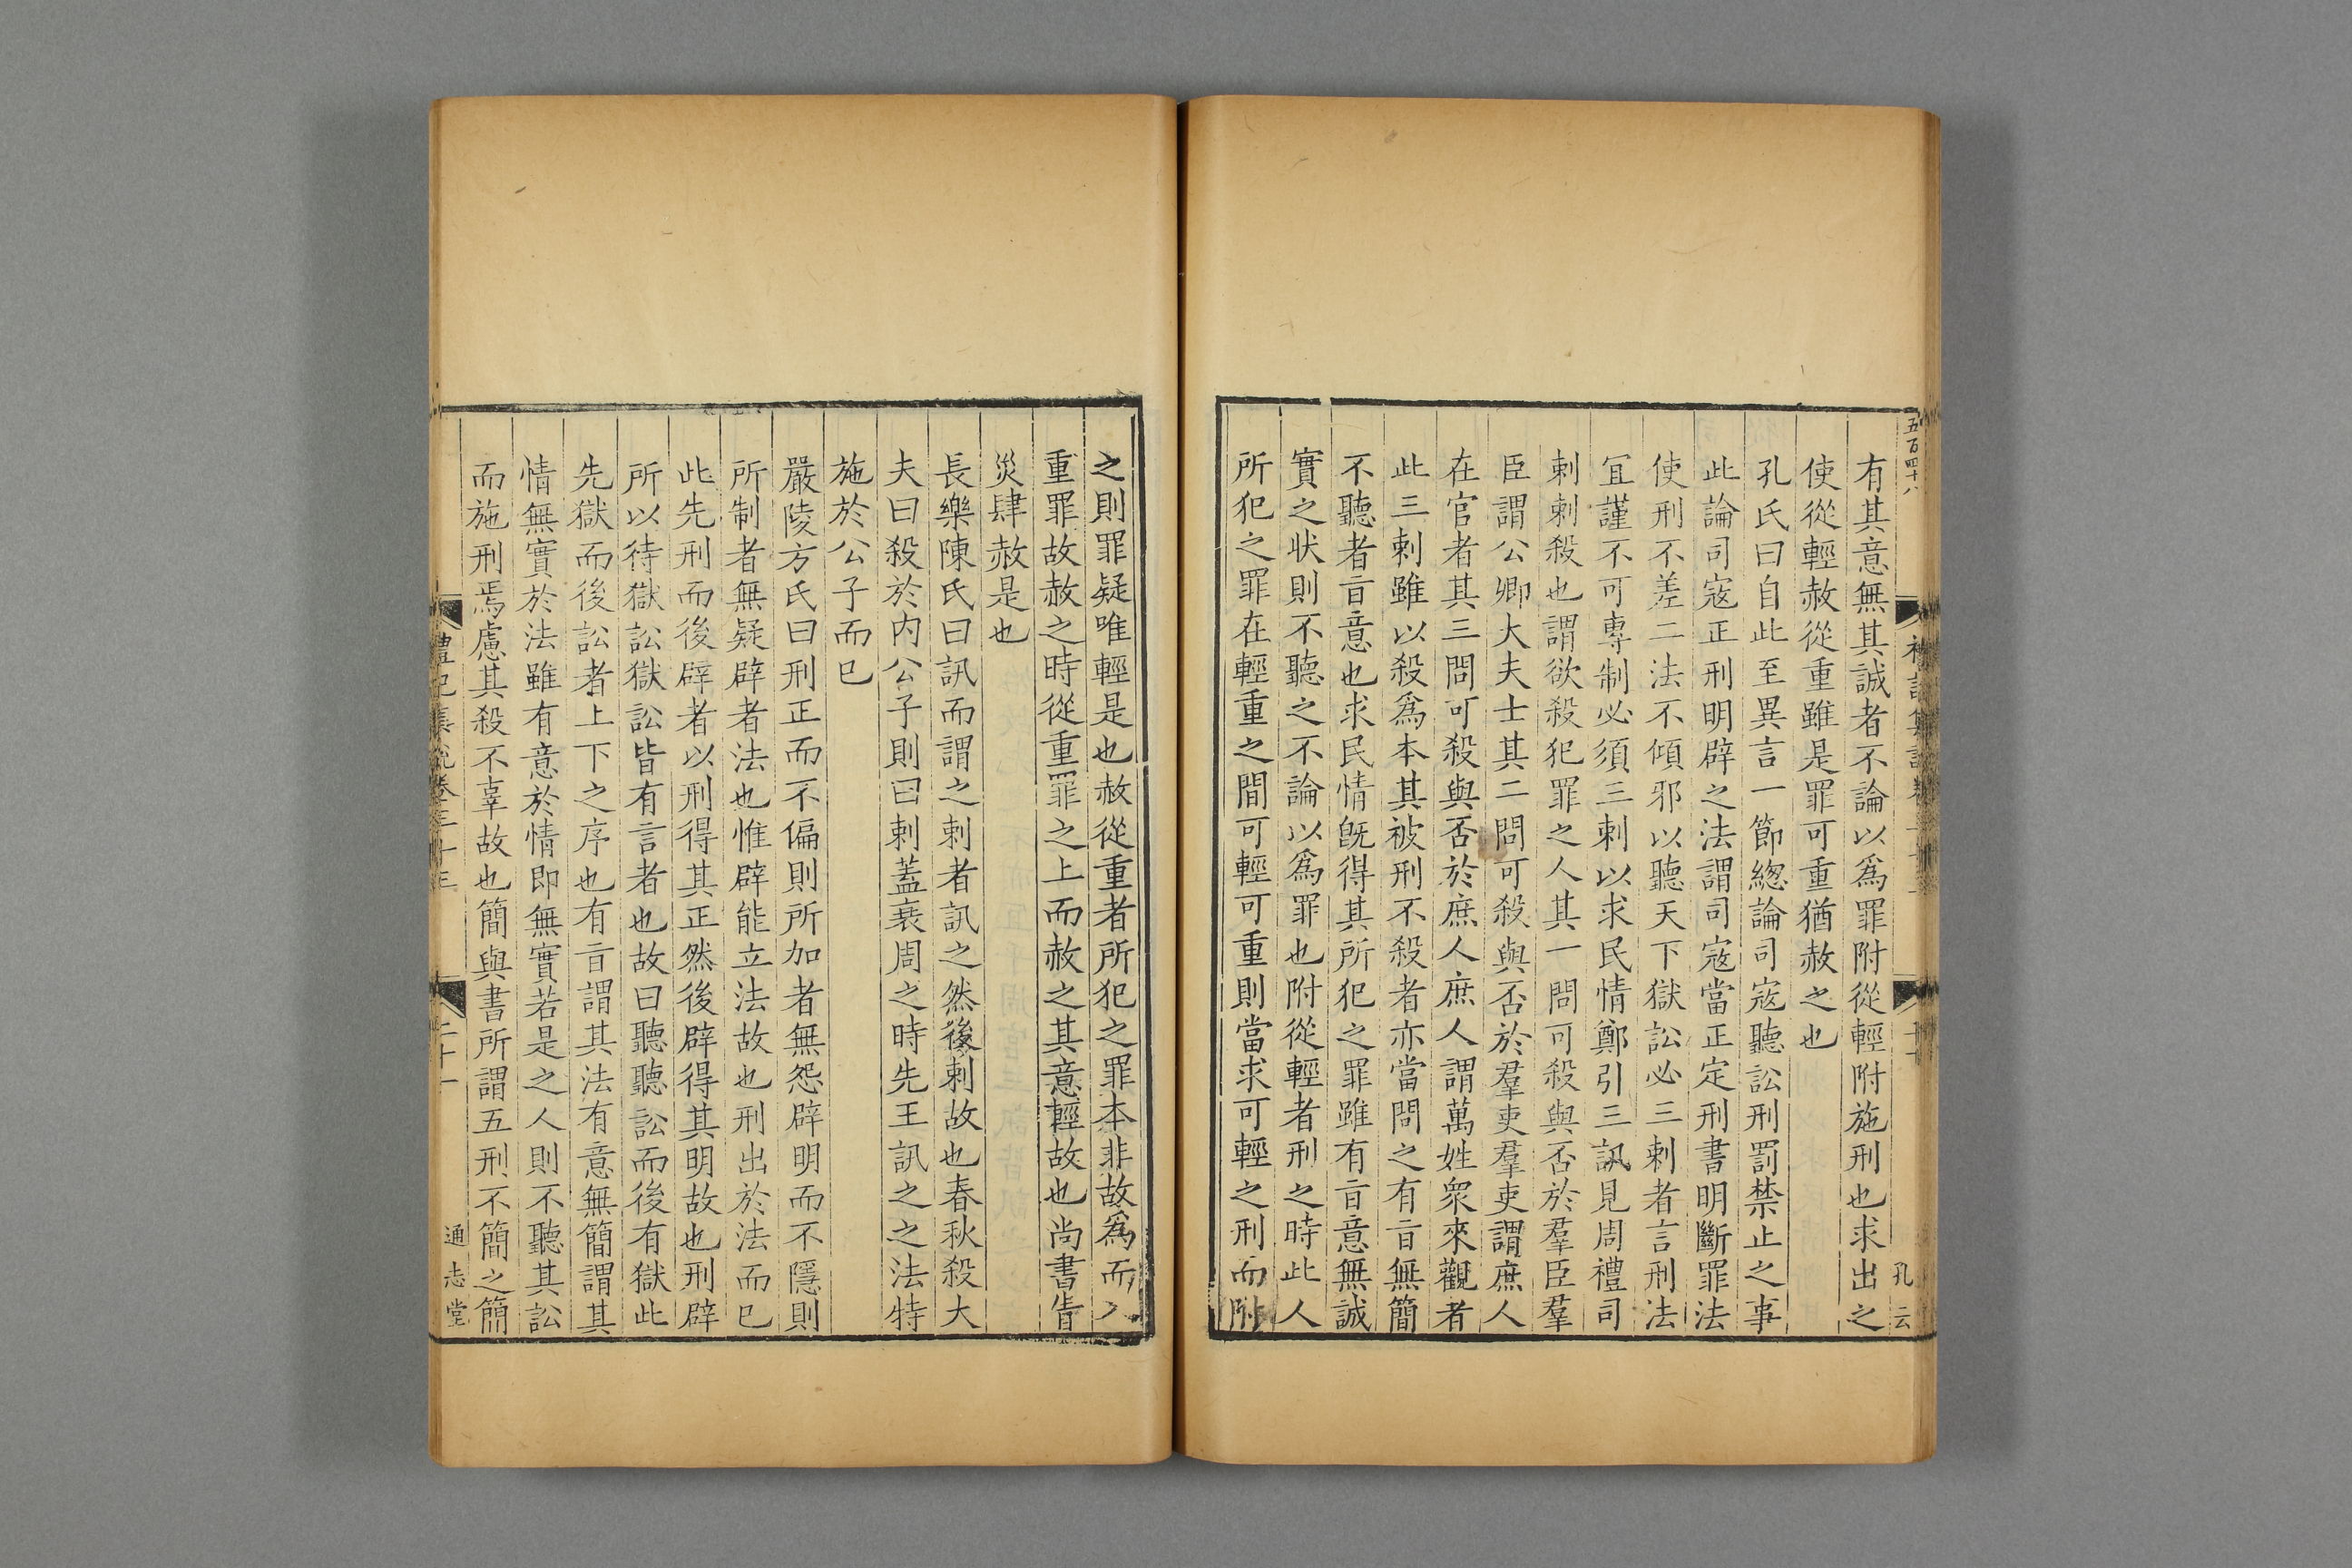 五百四十八
有其意無其誠者不論以爲罪附從輕附施刑也求出之
使從輕赦從重雖是罪可重猶赦之也
孔氏曰自此至異言一節緫論司寇聽訟刑罰禁止之事
此論司寇正刑明辟之法謂司寇當正定刑書明斷罪法
使刑不差二法不傾邪以聽天下獄訟必三刺者言刑法
冝謹不可專制必須三刺以求民情鄭引三訊見周禮司
刺刺殺也謂欲殺犯罪之人其一問可殺與否於羣臣羣
臣謂公卿大夫士其二問可殺與否於羣吏羣吏謂庶人
在官者其三問可殺與否於庶人庶人謂萬姓衆來觀者
此三刺雖以殺爲本其被刑不殺者亦當問之有㫖無簡
不聽者㫖意也求民情旣得其所犯之罪雖有㫖意無誠
實之狀則不聽之不論以爲罪也附從輕者刑之時此人
所犯之罪在輕重之間可輕可重則當求可輕之刑而附
孔云
之則罪疑唯輕是也赦從重者所犯之罪本非故爲而入
重罪故赦之時從重罪之上而赦之其意輕故也尚書眚
災肆赦是也
長樂陳氏曰訊而謂之刺者訊之然後刺故也春秋殺大
夫曰殺於内公子則曰刺蓋衰周之時先王訊之之法特
施於公子而已
嚴陵方氏曰刑正而不偏則所加者無怨辟明而不隱則
所制者無疑辟者法也惟辟能立法故也刑出於法而已
此先刑而後辟者以刑得其正然後辟得其明故也刑辟
所以待獄訟獄訟皆有言者也故曰聽聽訟而後有獄此
先獄而後訟者上下之序也有㫖謂其法有意無簡謂其
情無實於法雖有意於情即無實若是之人則不聽其訟
而施刑焉慮其殺不辜故也簡與書所謂五刑不簡之簡
禮記集說卷三十三
二十一
通志堂